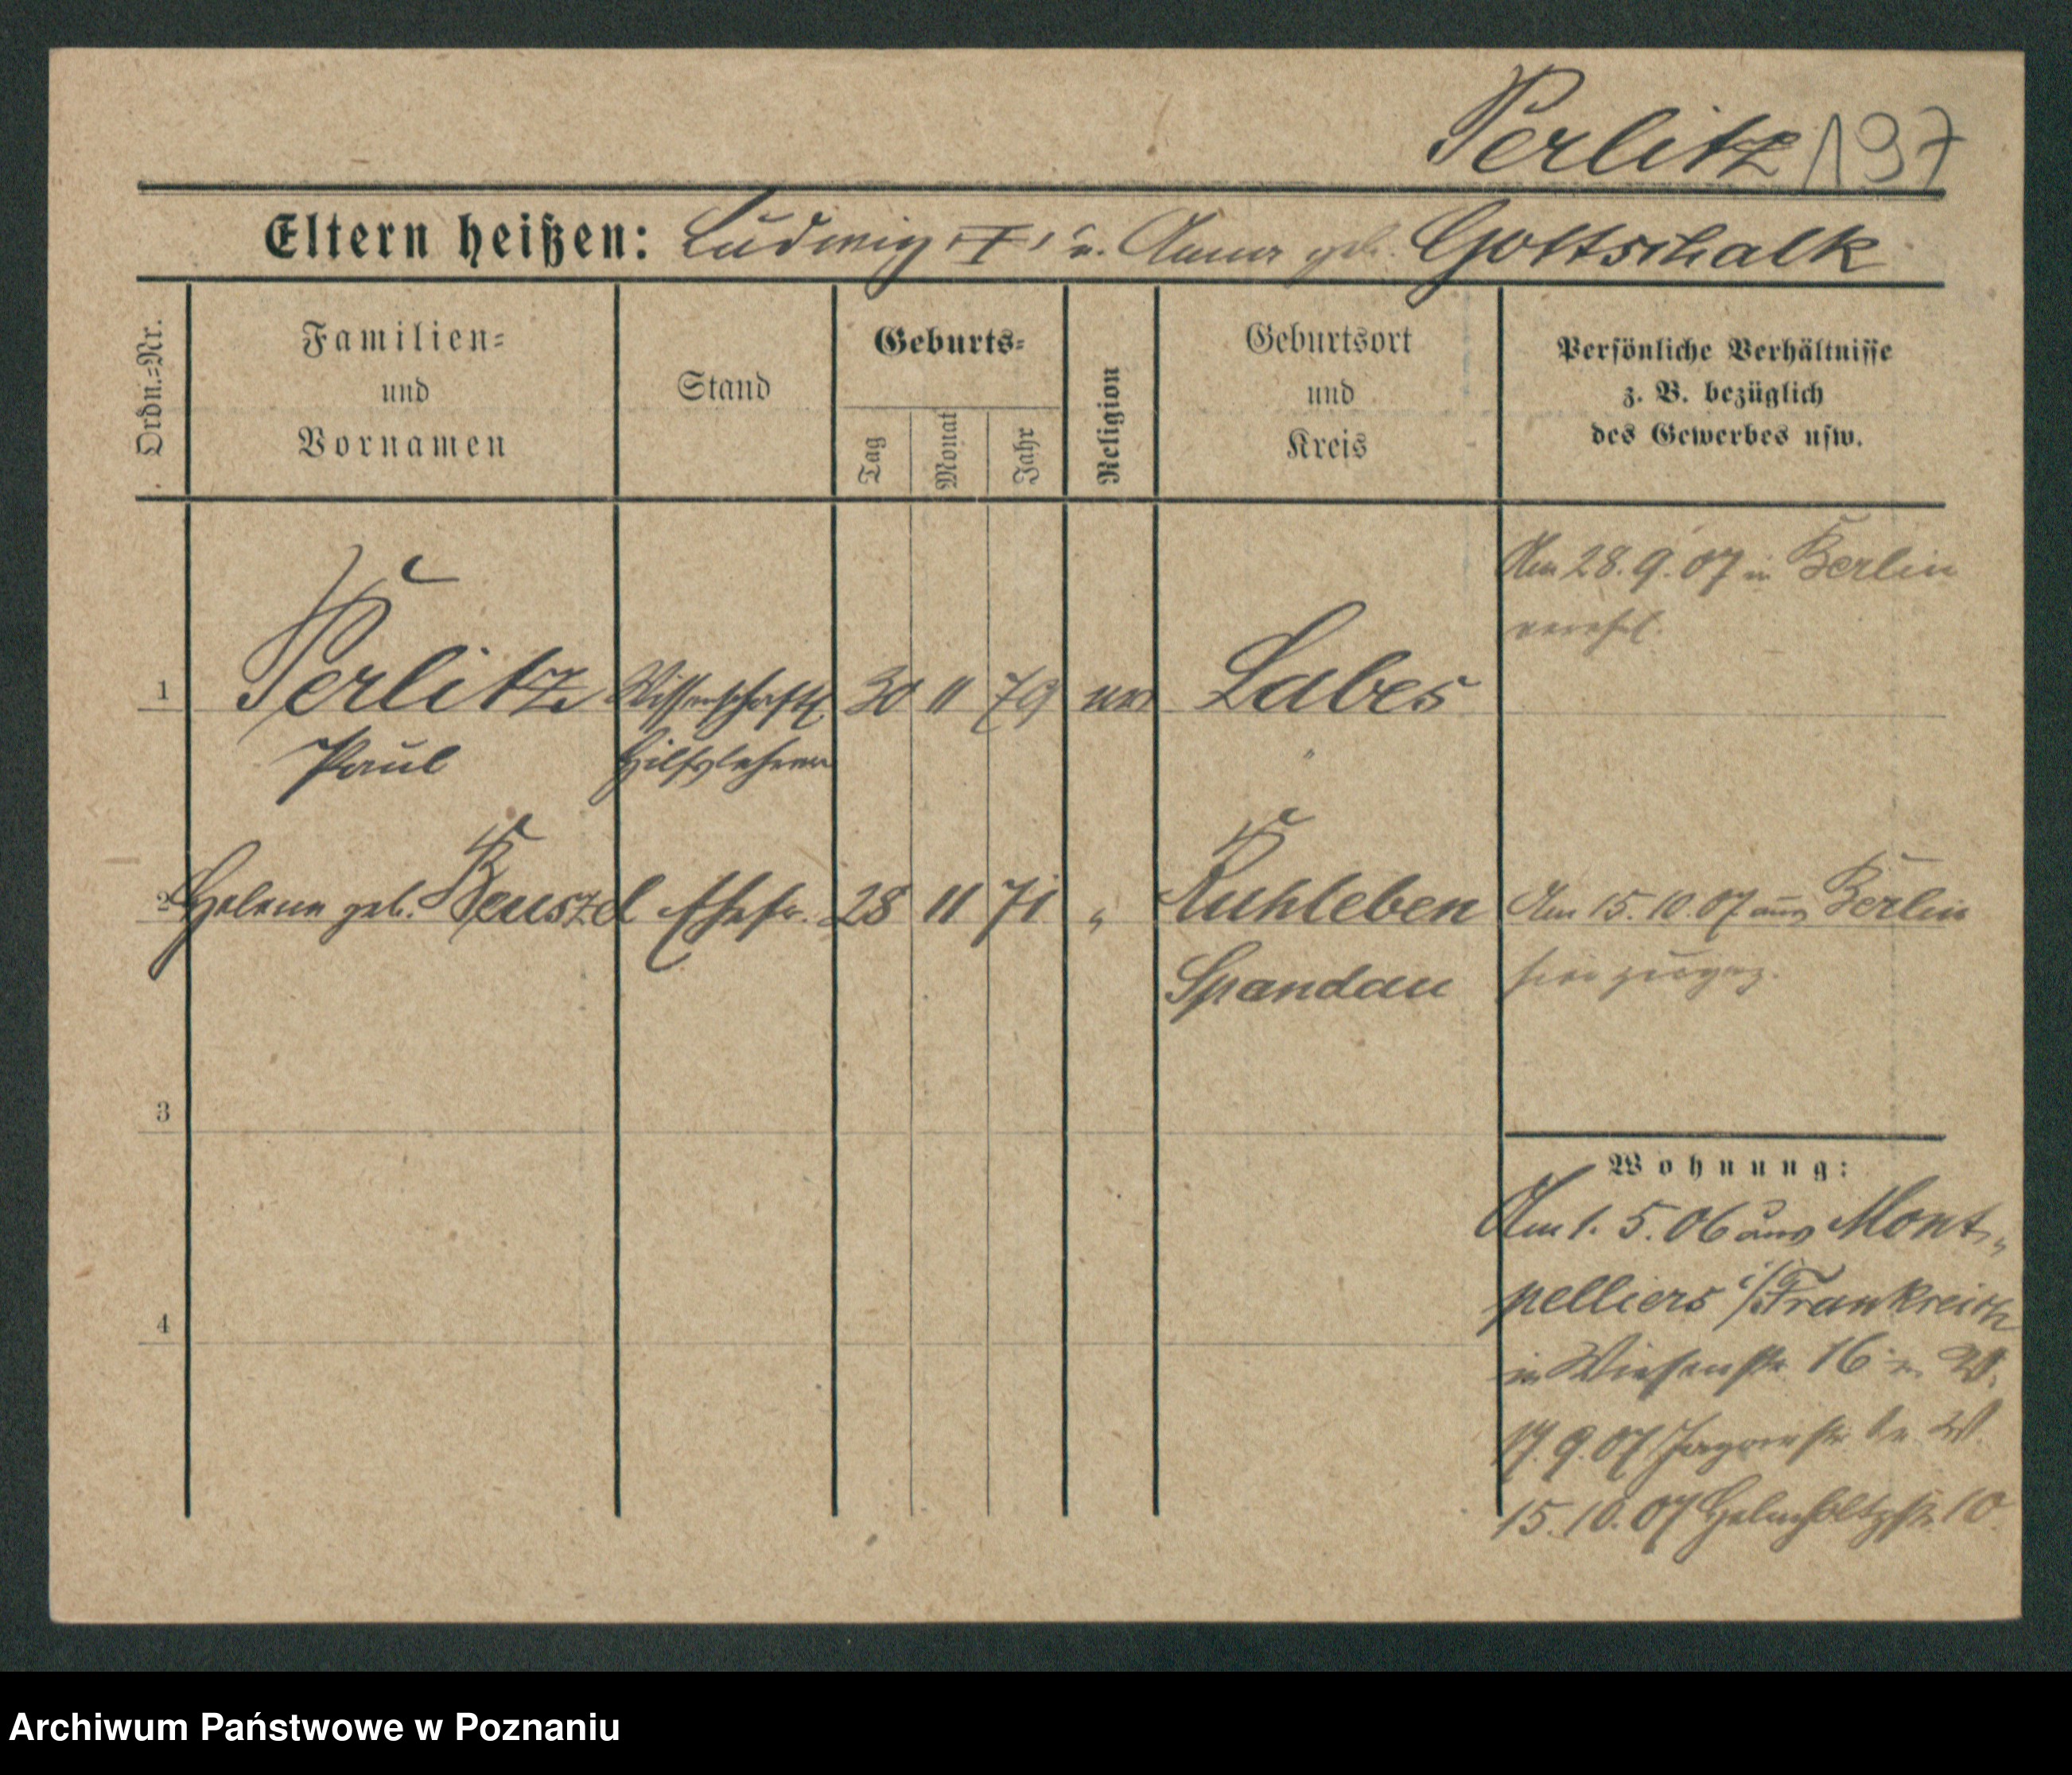 Perlitz 197
Eltern heißen: Ludwig, †, u. Anna geb. Gottschalk
Ordn.-Nr.
Familien-
und
Vornamen
Stand
Geburts-
Tag
Monat
Jahr
Religion
Geburtsort
und
Kreis
Persönliche Verhältnisse
z. B. bezüglich
des Gewerbes usw.
Am 28.9.07 in Berlin
verehel.
1 Perlitz Wissenschaftl. 30 11 79 ev Labes
Paul Hilfslehrer "
2 Helene geb. Ehefr. 28 11 71 " Ruhleben Am 15.10.07 aus Berlin
Spandau hier zugez.
3
Wohnung:
Am 1.5.06 aus Mont-
pelliers i/Frankreich
4
in Wiesenstr 16
17.9.07
15.10.07 Helmholtzstr. 10
Archiwum Państwowe w Poznaniu